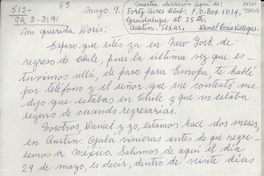 512-
99 2-3191
53
Mayo 9.
Nuestra dirección aquí es:
Forty Acres Club. P.O. Box 1014,
Guadalupe at 25 th.
Austin, Texas. Daniel Cosío Villegas.
Mi querida Doris:
Espero que estés ya en New York de
regreso de Chile, pues la última vez que es-
tuvimos allá, de paso para Europa, te hablé
por teléfono y el señor que me contestó me
dijo que estabas en Chile y que no estaba
seguro de cuando regresarías.
Nosotros, Daniel y yo, estamos hace dos meses,
en Austin. Ojalá vinieras antes de que regre-
semos a México. Salimos de aquí el día
29 de mayo, es decir, dentro de veinte días